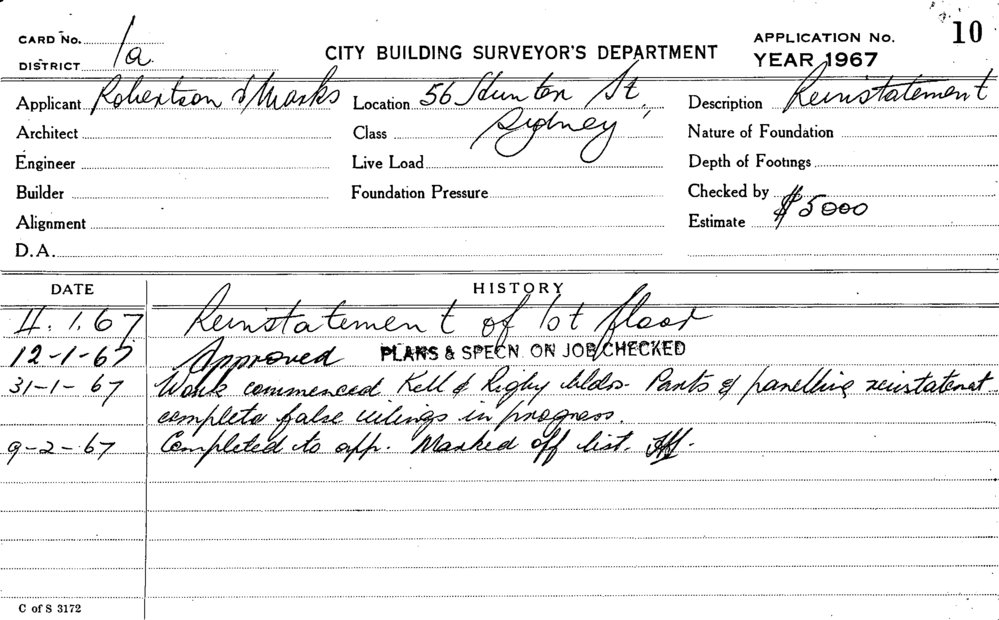 CARD No.
DISTRICT 1a
CITY BUILDING SURVEYOR'S DEPARTMENT
APPLICATION No. 10
YEAR 1967
Applicant Robertson & Marks Location 56 Hunter St, Description Reinstatement
Architect Class Sydney Nature of Foundation
Engineer Live Load Depth of Footings
Builder Foundation Pressure Checked by
Alignment Estimate $5000
D.A.
DATE HISTORY
11.1.67 Reinstatement of 1st floor
12-1-67 Approved PLANS & SPECN. ON JOB CHECKED
31-1-67 Work commenced Kell & Rigby bldrs. Parts of panelling reinstatement
complete false ceilings in progress.
9-2-67 Completed to app. Marked off list.
C of S 3172